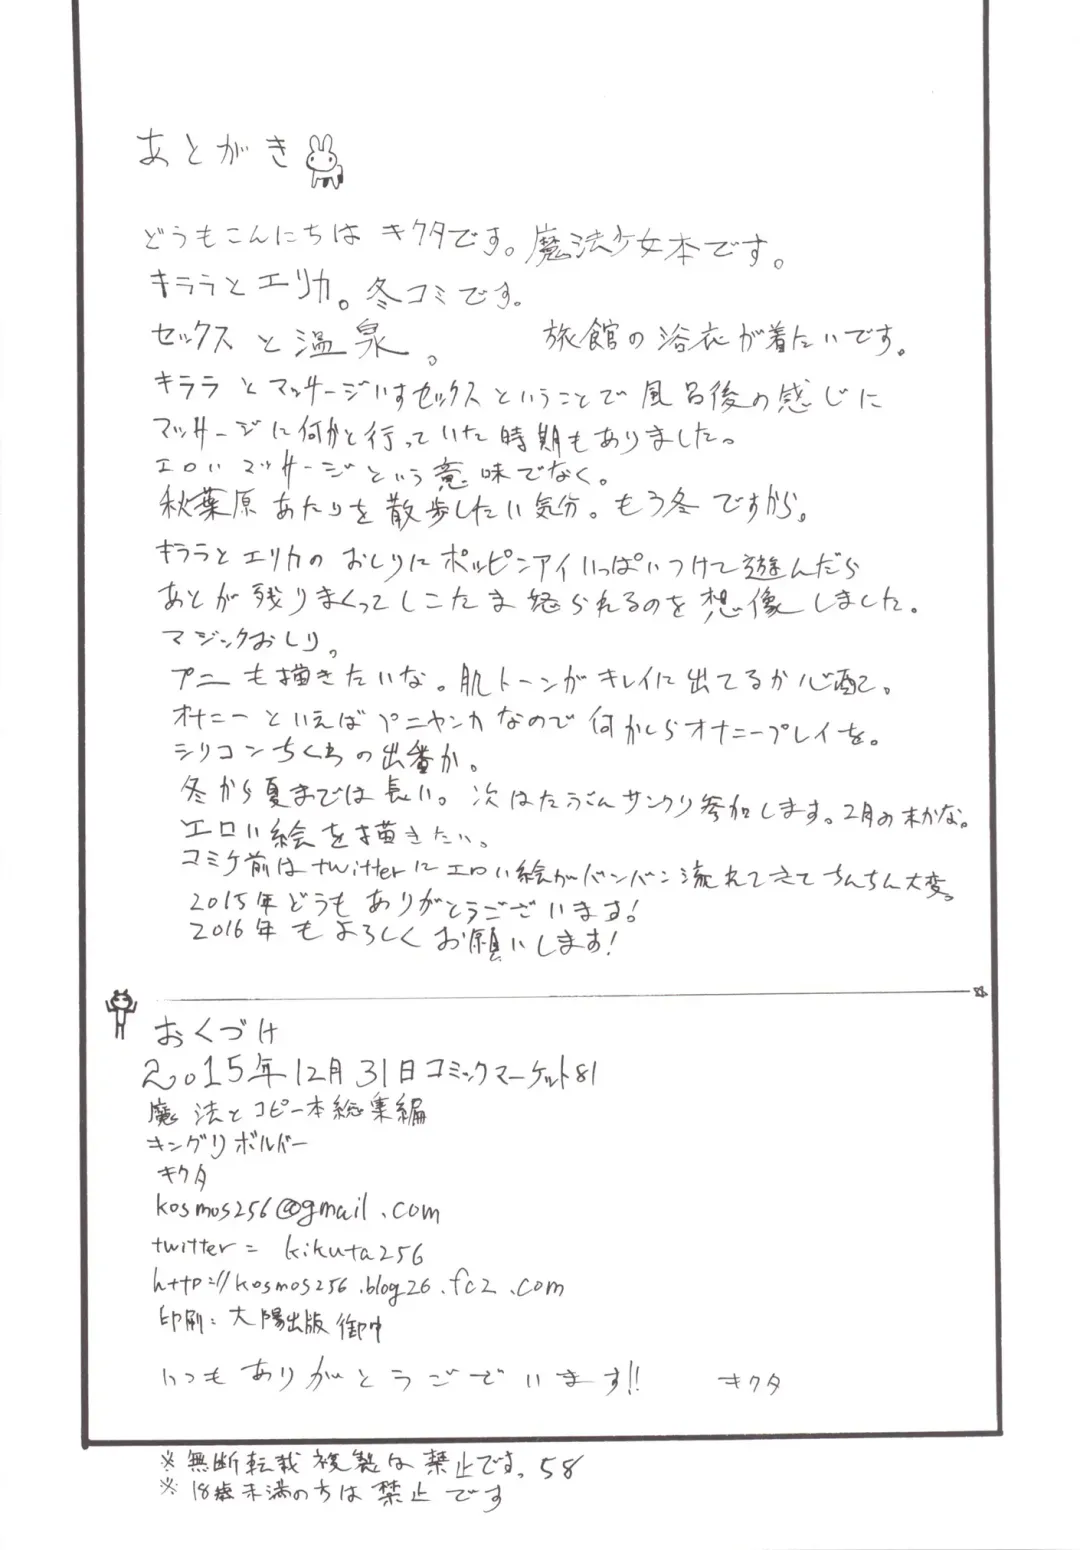 あとがき
どうもこんにちは キクタです。魔法少女本です。
キララとエリカ。冬コミです。
セックスと温泉。 旅館の浴衣が着たいです。
キララとマッサージいすセックスということで風呂後の感じに
マッサージに何かと行っていた時期もありました。
エロいマッサージという意味でなく。
秋葉原あたりを散歩したい気分。もう冬ですから。
キララとエリカのおしりにポッピンアイいっぱいつけて遊んだら
あとが残りまくってしこたま怒られるのを想像しました。
マジックおしり。
アニも描きたいな。肌トーンがキレイに出てるか心配。
オナニーといえばアニヤンカなので何かしらオナニープレイを。
シリコンちくわの出番か。
冬から夏までは長い。次はたぶんサンクリ参加します。2月の末かな。
エロい絵を描きたい。
コミケ前はtwitterにエロい絵がバンバン流れてきてちんちん大変。
2015年どうもありがとうございます!
2016年もよろしくお願いします!
おくづけ
2015年12月31日コミックマーケット81
魔法とコピー本総集編
キングリボルバー
キクタ
kosmos256@gmail.com
twitter= kikuta256
http://kosmos256.blog26.fc2.com
印刷:大陽出版 御中
いつもありがとうございます!! キクタ
※無断転載複製は禁止です。58
※18歳未満の方は禁止です